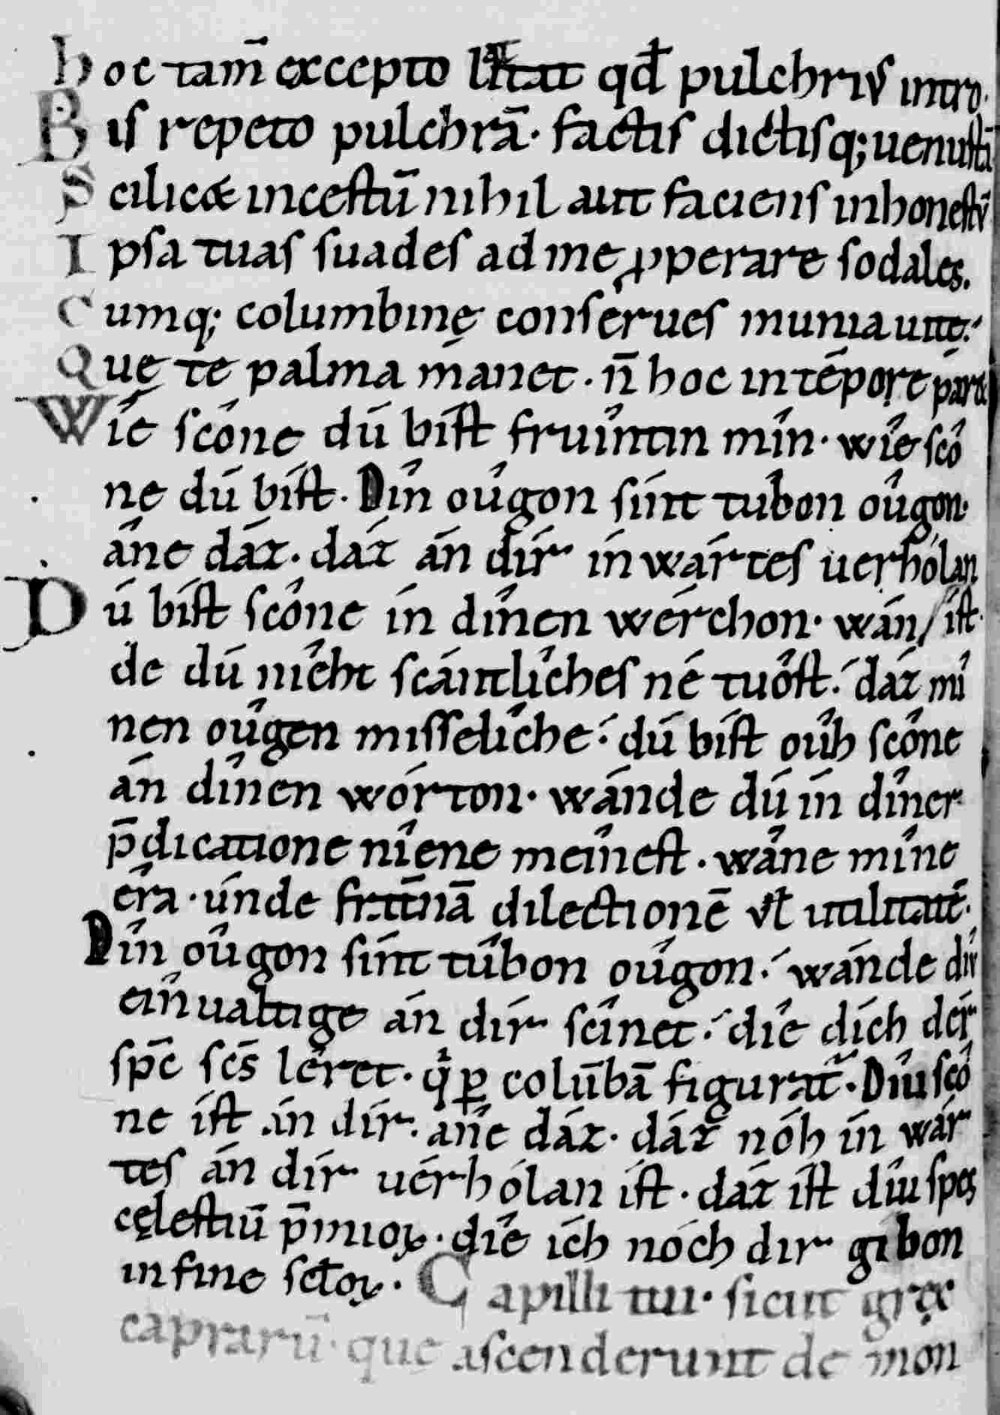 hoc tam̄ excepto latat qđ pulchriꝰ intro.
Bis repeto pulchrā· factis dictisq; uenustā
Scilicæ incestū nihil aut faciens inhonestū
Ipsa tuas suades ad mę ꝓperare sodales.
Cumq; columbinę conserues munia uitę.
Quę te palma manet· n̄ hoc in tēpore paræ
Wîe scône dû bíst frûintin mîn· wîe scô
nę dû bíst· Dîn oûgon sínt tûbon oûgon·
âne dáz· dáz án dír ínwártes uerhólan
Dû bíst scône ín dînen wérchon· wán/ íst·
de dû nîeht scántlîches nê tuôst· dáz mî
nen oûgen misselîche· dû bíst oûh scône
án dînen wórton· wánde dû ín dîner
p̄dicatione nîene meînest· wâne mîne
êra· únde fr̄nā dilectionē ꝉ utilitatē·
Dîn oûgon sínt tûbon oûgon· wánde dîv
eînualtige án dír scînet· dîe dích dér
sp̄c sc̄s lêret· q̇ ꝑ colūbā figurat̄· Dîu scô
ne íst án dír· âne dáz· dáz nóh ín wár
tes án dír uérhólan íst· dáz íst dîu spes
cęlestiū p̄mioꝝ· dîe ích nóch dír gibon
in fine sc̄loꝝ· Capilli tui· sicut gręx
caprarū· que ascenderunt de mon